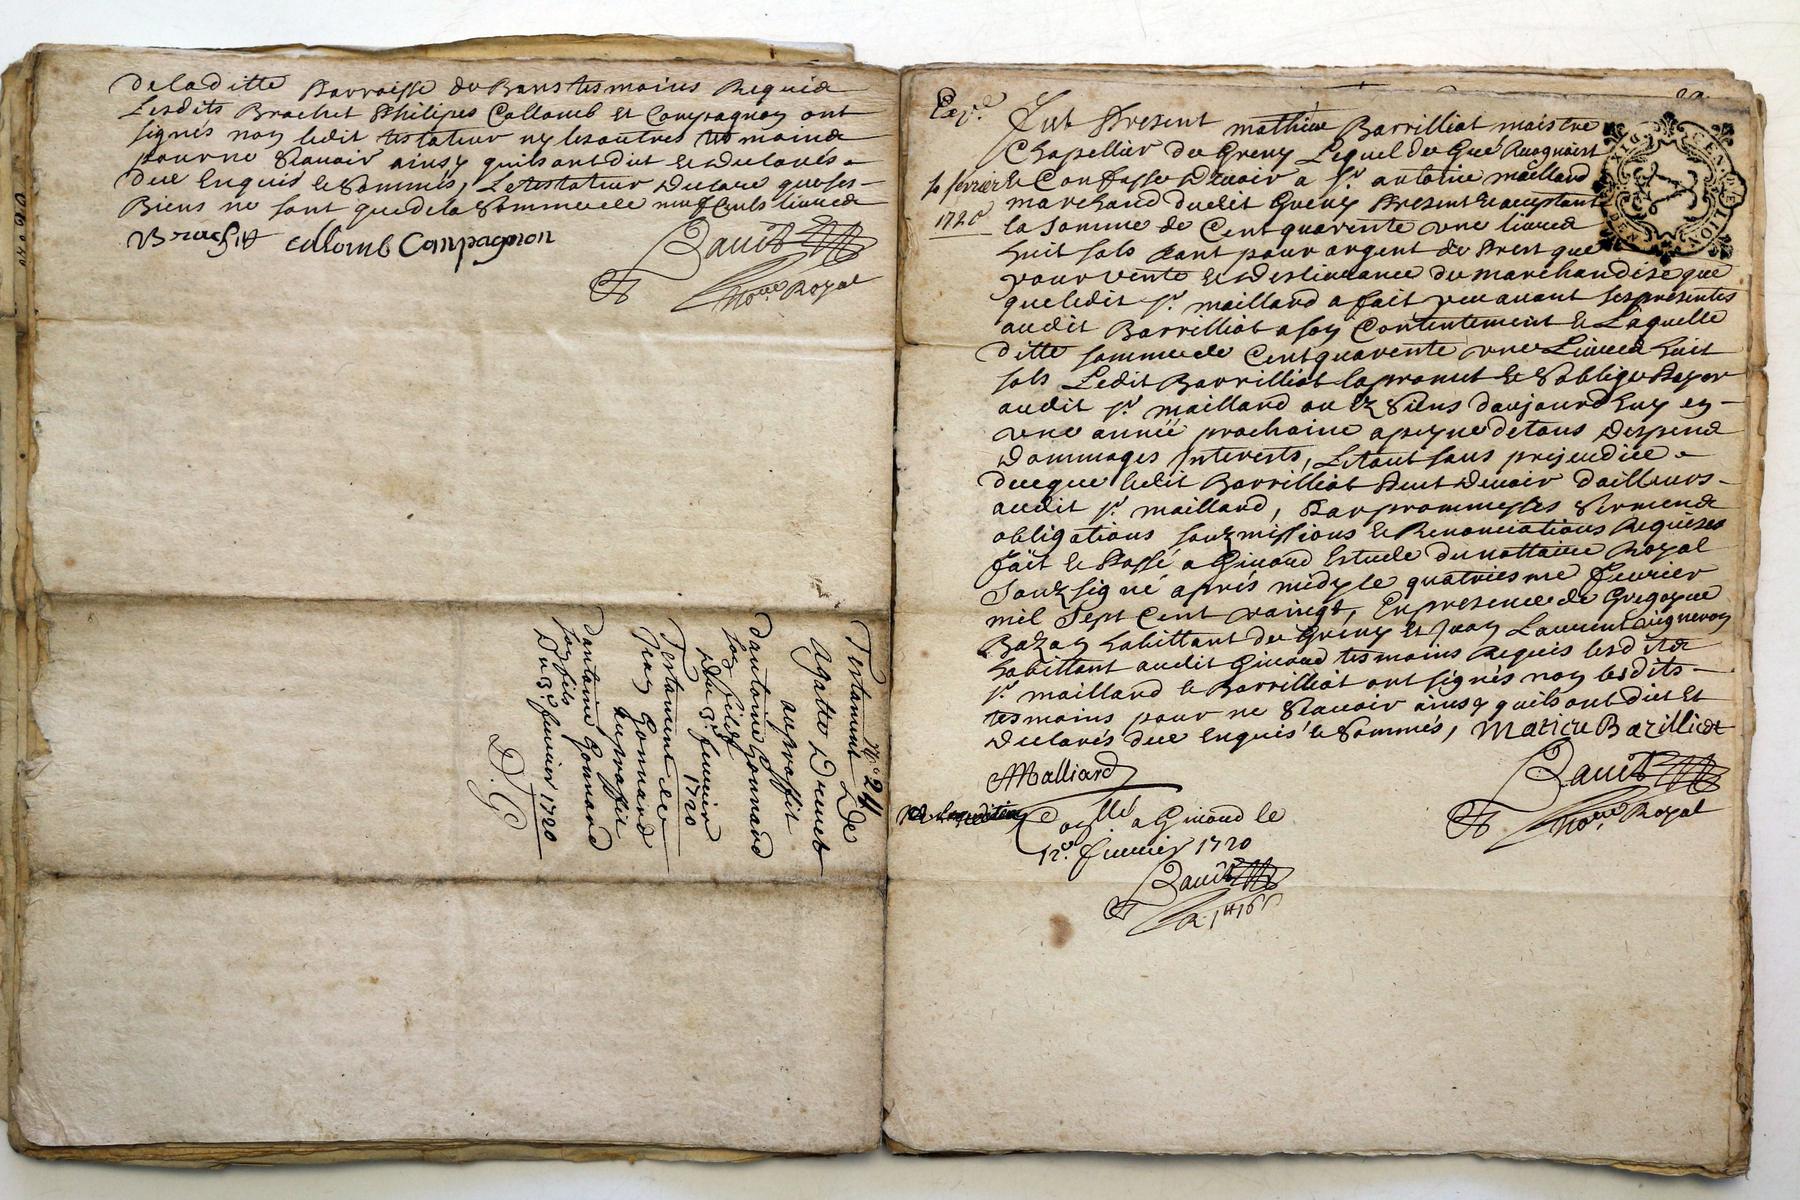 de laditte Parroisse de Bans tesmoins Requis
Lesdits Brachet Philipes Collomb et Compagnon ont
signés non ledit testateur ny les autres tesmoins
pour ne scavoir ainsy quils ont dit et declarés
due Enquis et sommés, Le testateur declare que ses
Biens ne sont que de la somme de neuf Cents livres
Brachet Collomb Compagnon
Bauet
no.re Royal
No 24
Testament de
agatte Drevet
au proffit
dantoine Gonnard
son fils
Du 3e fevrier
1720
Testament de
Jean Gonnard
au proffit
dantoine Gonnard
son fils
Du 3e fevrier 1720
D. G
Exp.e
fevrier
1720
Fut Present mathieu Barrilliot maistre
Chapellier de Greny Lequel de Gré Recognoist
et Confesse devoir a sr antoine maillard
marchand dudit Greny Present et acceptant
la somme de Cent quarente une livres
huit sols tant pour argent de Prest que
pour vente et deslivrance de marchandise que
que ledit sr. maillard a fait avant ses presentes
audit Barrilliot a son Contentement et Laquelle
ditte somme de Cent quarente une Livres huit
sols Ledit Barrilliot la promet et soblige Payer
audit sr. maillard ou ez siens daujourdhuy en
une année prochaine a peyne de tous despens
dommages Interests, Le tout sans prejeudice
de ce que ledit Barrilliot Peut devoir dailleurs
audit sr. maillard, Par prommesses serments
obligations souzmissions et Renonciations Requises
fait et Passé a Givord Estude du nottaire Royal
souzsigné après midy le quatriesme fevrier
mil sept Cent vaingt, En presence de Gregoyre
Bazan habittant de Greny et Jean Laurent vigneron
habittant audit Givord tesmoins Requis lesdits
sr. maillard et Barrilliot ont signés non lesdits
tesmoins pour ne scavoir ainsy quils ont dit et
declarés due Enquis et sommés, Matieu Barilliot
Malliard
Bauet
no.re Royal
Con.llé a Givord le
12e fevrier 1720
Bauet
GEN DE LION